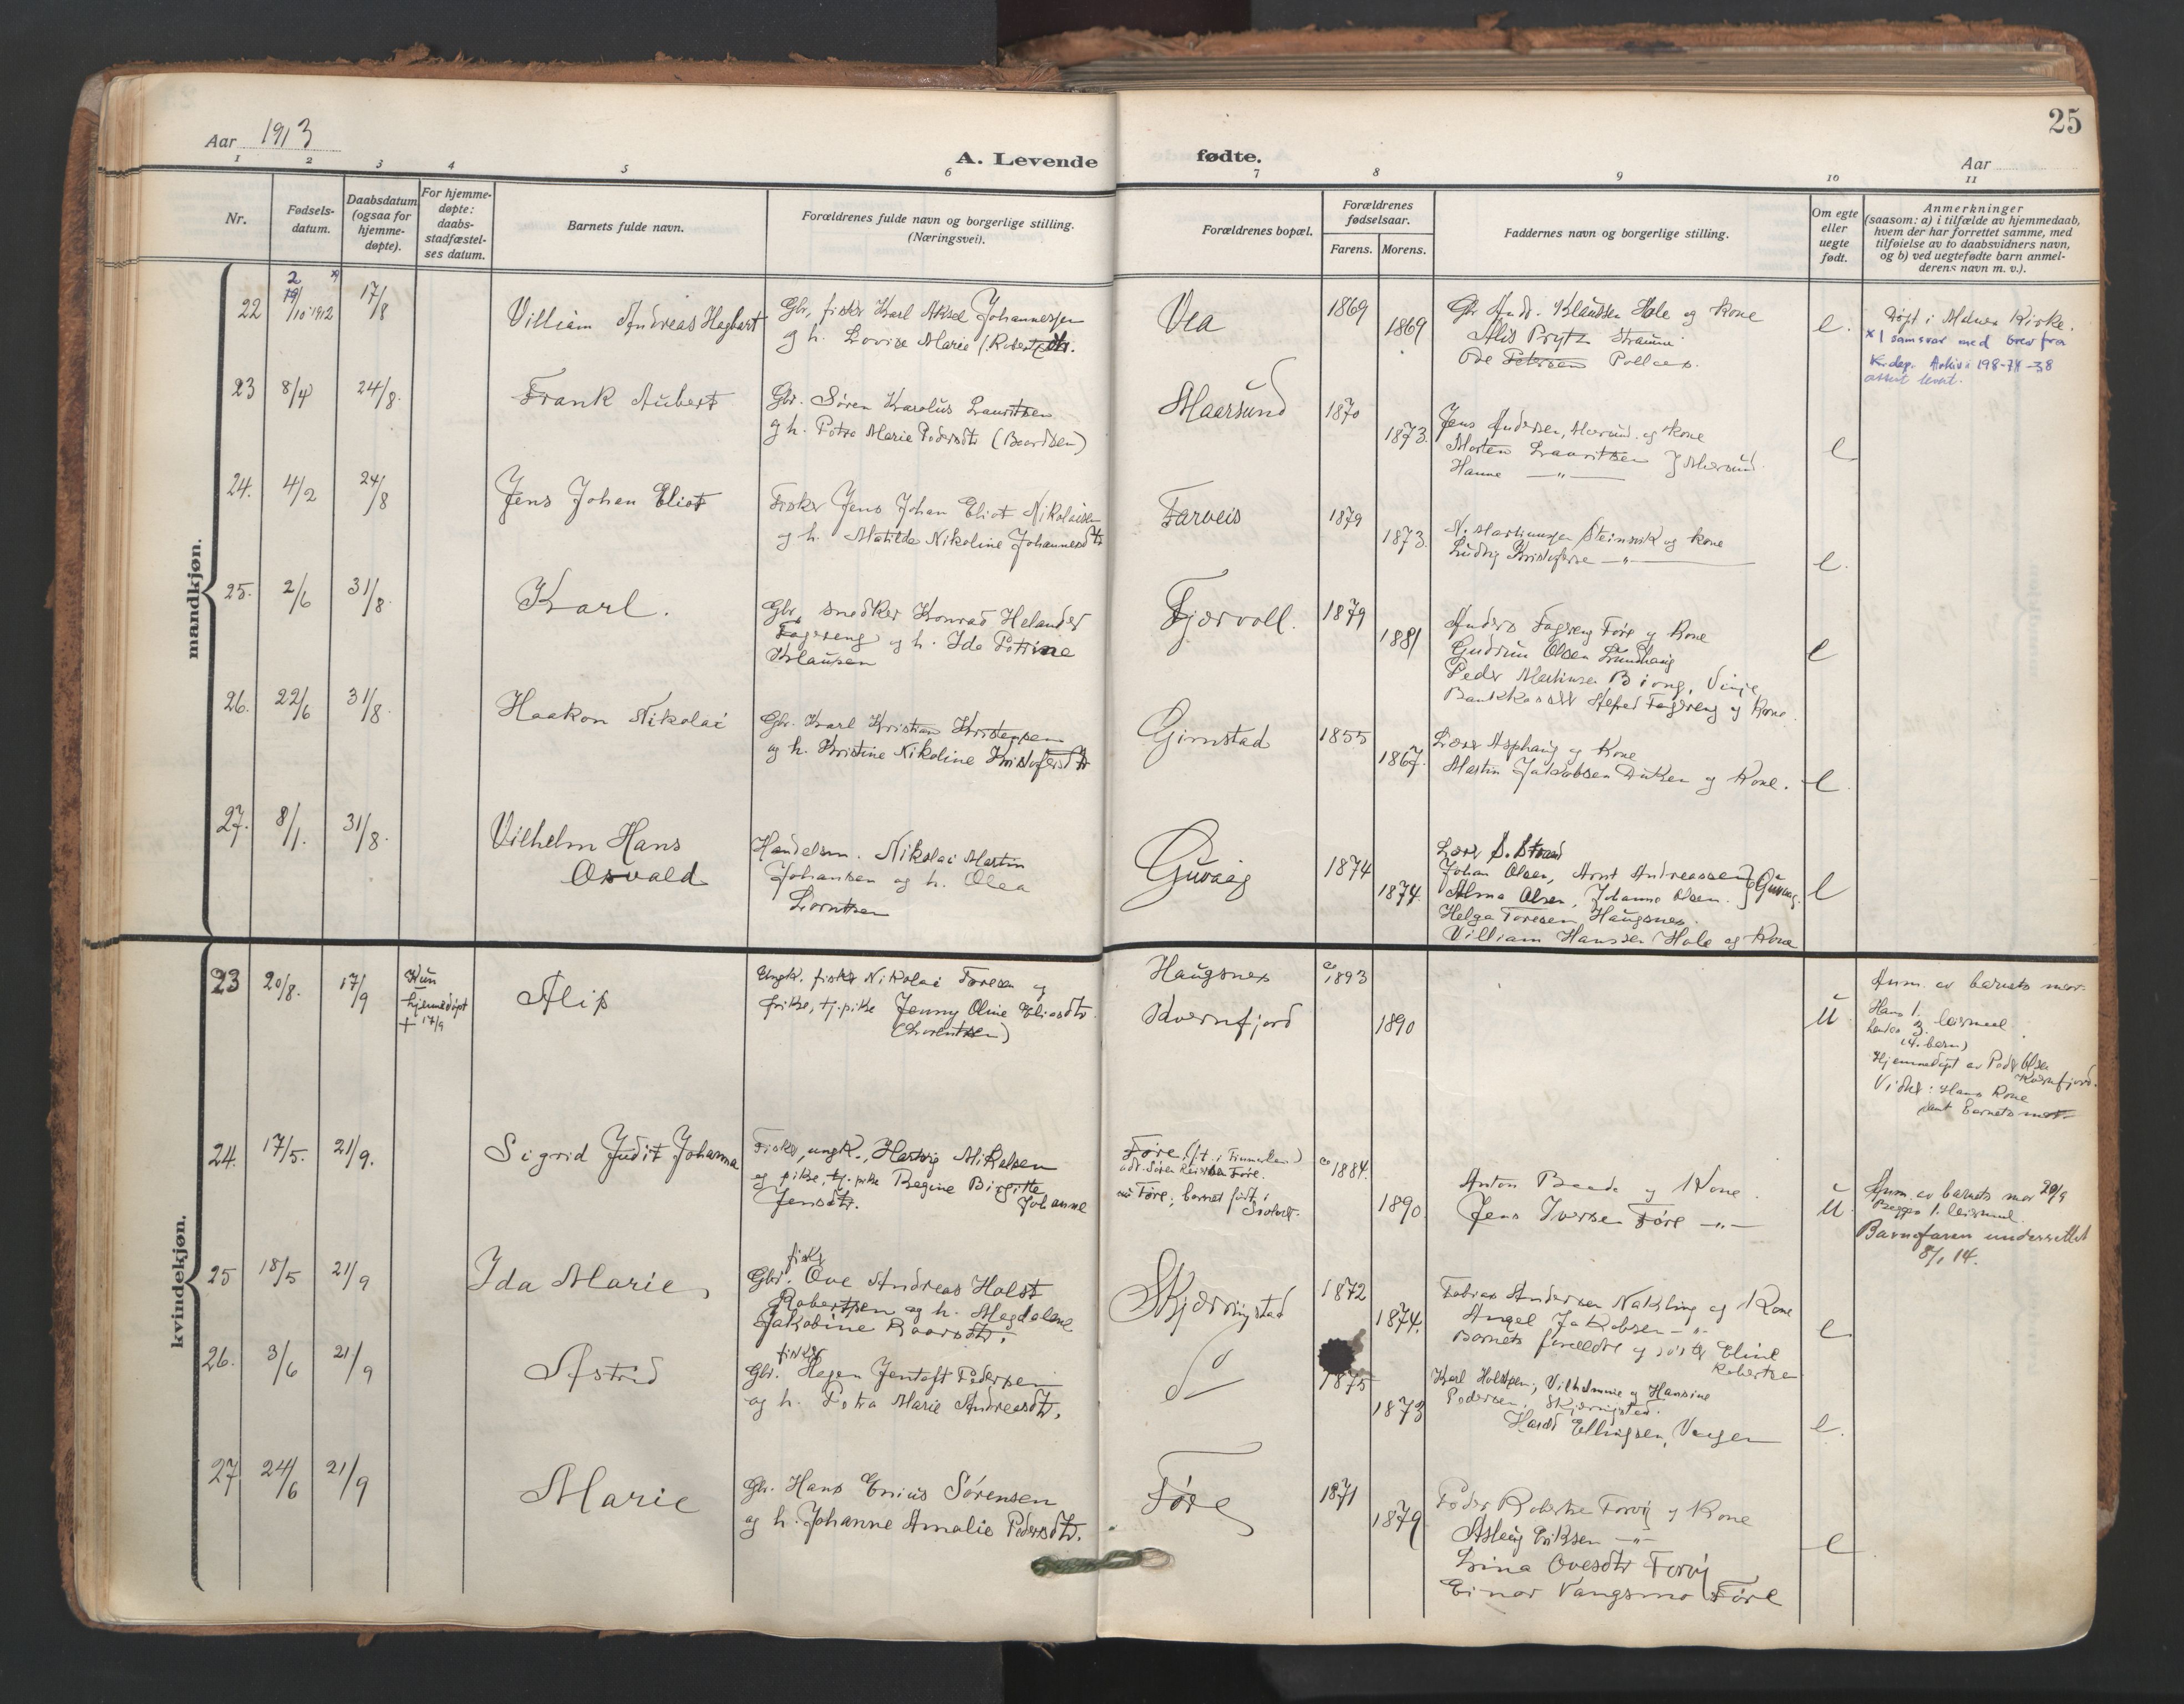 25
Aar 1913
A. Levende fødte.
Aar
1 2 3 4 5 6 7 8 9 10 11
Nr.
Fødsels-
datum.
Daabsdatum
(ogsaa for
hjemme-
døpte).
For hjemme-
døpte:
daabs-
stadfæstel-
ses datum.
Barnets fulde navn.
Forældrenes fulde navn og borgerlige stilling.
(Næringsvei).
Forældrenes bopæl.
Forældrenes
fødselsaar.
Farens. Morens.
Faddernes navn og borgerlige stilling.
Om egte
eller
uegte
født.
Anmerkninger
(saasom: a) i tilfælde av hjemmedaab,
hvem der har forrettet samme, med
tilføielse av to daabsvidners navn,
og b) ved uegtefødte barn anmel-
derens navn m. v.).
mandkjøn.
22 2 19/10 1912 x) 17/8
Villiam Andreas Hagbart
Gbr, fisker Karl Aksel Johannessen
og h. Lovise Marie (Robertsdtr.
Vea
1869
1869
Gbr Andr. Klausen Hole og kone
Alis Prytz Straume
Ove Petersen Pollnes.
e.
Døpt i Melnes Kirke.
x) samsvar med brev fra
Kirkedep. Arkiv: 198-74-38
attest levert.
23 8/4 24/8.
Frank Aubert
Gbr. Søren Karolus Lauritsen
og h. Petra Marie Pedersdtr (Baardsen)
Maarsund
1870
1873.
Jens Andersen, Maarsund. og kone
Morten Lauritsen } Maarsund.
Hanne —"—
e
24. 4/2 24/8
Jens Johan Eliot
Fisker Jens Johan Eliot Nikolaisen
og h. Matilde Nikoline Johannesdtr
Farveis
1879
1873.
N. Martinussen Steinsvik og kone
Ludvig Kristoferse —"—
e.
25. 2/6 31/8.
Karl.
Gbr, snedker Konrad Helander
Fagereng og h. Ida Petrine
Klausen
Fjærvoll.
1879
1881
Anders Fagereng Føre og Kone
Gudrun Olsen
Peder Martinsen Biong, Vinje
Bankkasser Alfred Fagereng og Kone.
e
26. 22/6 31/8.
Haakon Nikolai
Gbr. Karl Kristian Kristensen
og h. Kristine Nikoline Kristofersdtr
Gimstad
1855
1867.
Lærer Asphaug og Kone
Martin Jakobsen Duken og Kone.
e.
27. 8/1. 31/8.
Vilhelm Hans
Osvald
Handelsm. Nikolai Martin
Johansen og h. Olea
Lorntsen
Guvaag
1874
1874.
Lærer S. Strand
Johan Olsen, Arnt Andreassen } Guvaag.
Alma Olsen, Johanna Olsen.
Helga Toresen, Haugsnes.
Villiam Hanssen Hole og Kone
e
kvindekjøn.
23 20/8. 17/9
Kun
hjemmedøpt
+ 17/9
Alis
Ungk. fisker Nikolai Toresen og
pike, tj. pike Jenny Oline Eliasdtr.
(Lorentsen)
Haugsnes
Kvernfjord
ca 1893
1890
u
Anm. av barnets mor.
Hans 1.
hendes 3. leiermaal.
(4. barn)
Hjemmedøpt av Peder Olsen
Kvernfjord.
Vidner: Hans Kone
samt barnets mor.
24. 17/5. 21/9.
Sigrid Judit Johanna
Fisker, ungk., Hartvig Mikalsen
og pike, tj. pike Regine Birgitte
Jensdtr. Johanne
Føre, (f.t. i Finmarken)
adr. Søren Føre.
nu Føre; barnet født i
Svolvær.
ca 1884.
1890.
Anton Baade og Kone.
Jens Iversen Føre —"—
u
Anm. av barnets mor 20/9
Begges 1. leiermaal.
Barnefaren underrettet
8/1 14.
25 18/5 21/9
Ida Marie
fisker
Gbr. Ove Andreas Holst
Robertsen og h. Magdalene
Jakobine Roarsdtr.
Skjærvingstad
1872
1874.
Tobias Andersen Nakling og Kone
Angel Jakobsen —"—
Barnets forældre og søster Eline
Robertsen
e
26. 3/6 21/9
Astrid
fisker
Gbr. Hagen Jentoft Pedersen
og h. Petra Marie Andreasdtr.
do
1875
1873
Karl Holstsen, Vilhelmine og Hansine
Pedersen, Skjærvingstad.
Harald Ellingsen, Vangen
e.
27 24/6 21/9
Marie
Gbr. Hans Enius Sørensen
og h. Johanne Amalie Pedersdtr.
Føre
1871
1879
Peder Robertsen Forøy og Kone
Asleig Eriksen —"—
Lina Ovesdtr Forøy
Einar Vangsmo Føre
e